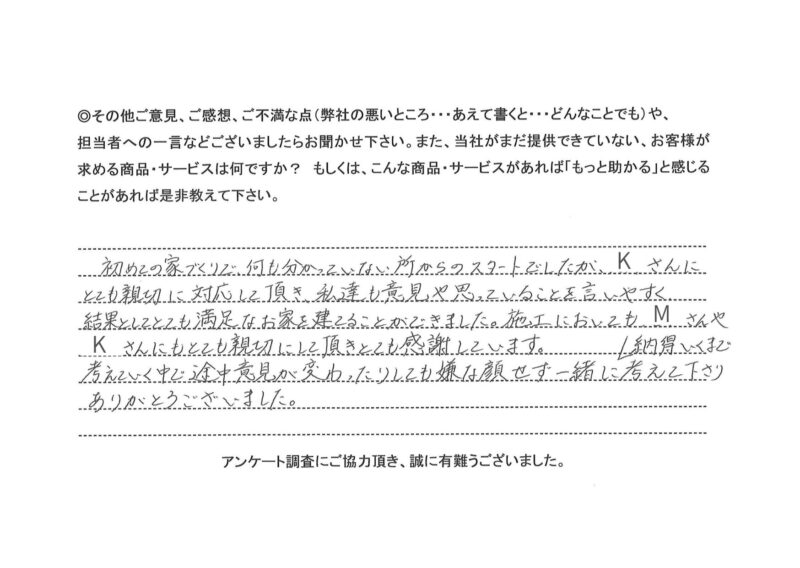 ◎その他ご意見、ご感想、ご不満な点(弊社の悪いところ・・・あえて書くと・・・どんなことでも)や、
担当者への一言などございましたらお聞かせ下さい。また、当社がまだ提供できていない、お客様が
求める商品・サービスは何ですか？ もしくは、こんな商品・サービスがあれば「もっと助かる」と感じる
ことがあれば是非教えて下さい。
初めての家づくりで、何も分かっていない所からのスタートでしたが、Kさんに
とても親切に対応して頂き、私達も意見や思っていることを言いやすく
結果としてとても満足なお家を建てることができました。施工においても、Mさんや
Kさんにもとても親切にして頂きとても感謝しています。 納得いくまで
考えていく中で途中意見が変わったりしても嫌な顔せず一緒に考えて下さり
ありがとうございました。
アンケート調査にご協力頂き、誠に有難うございました。